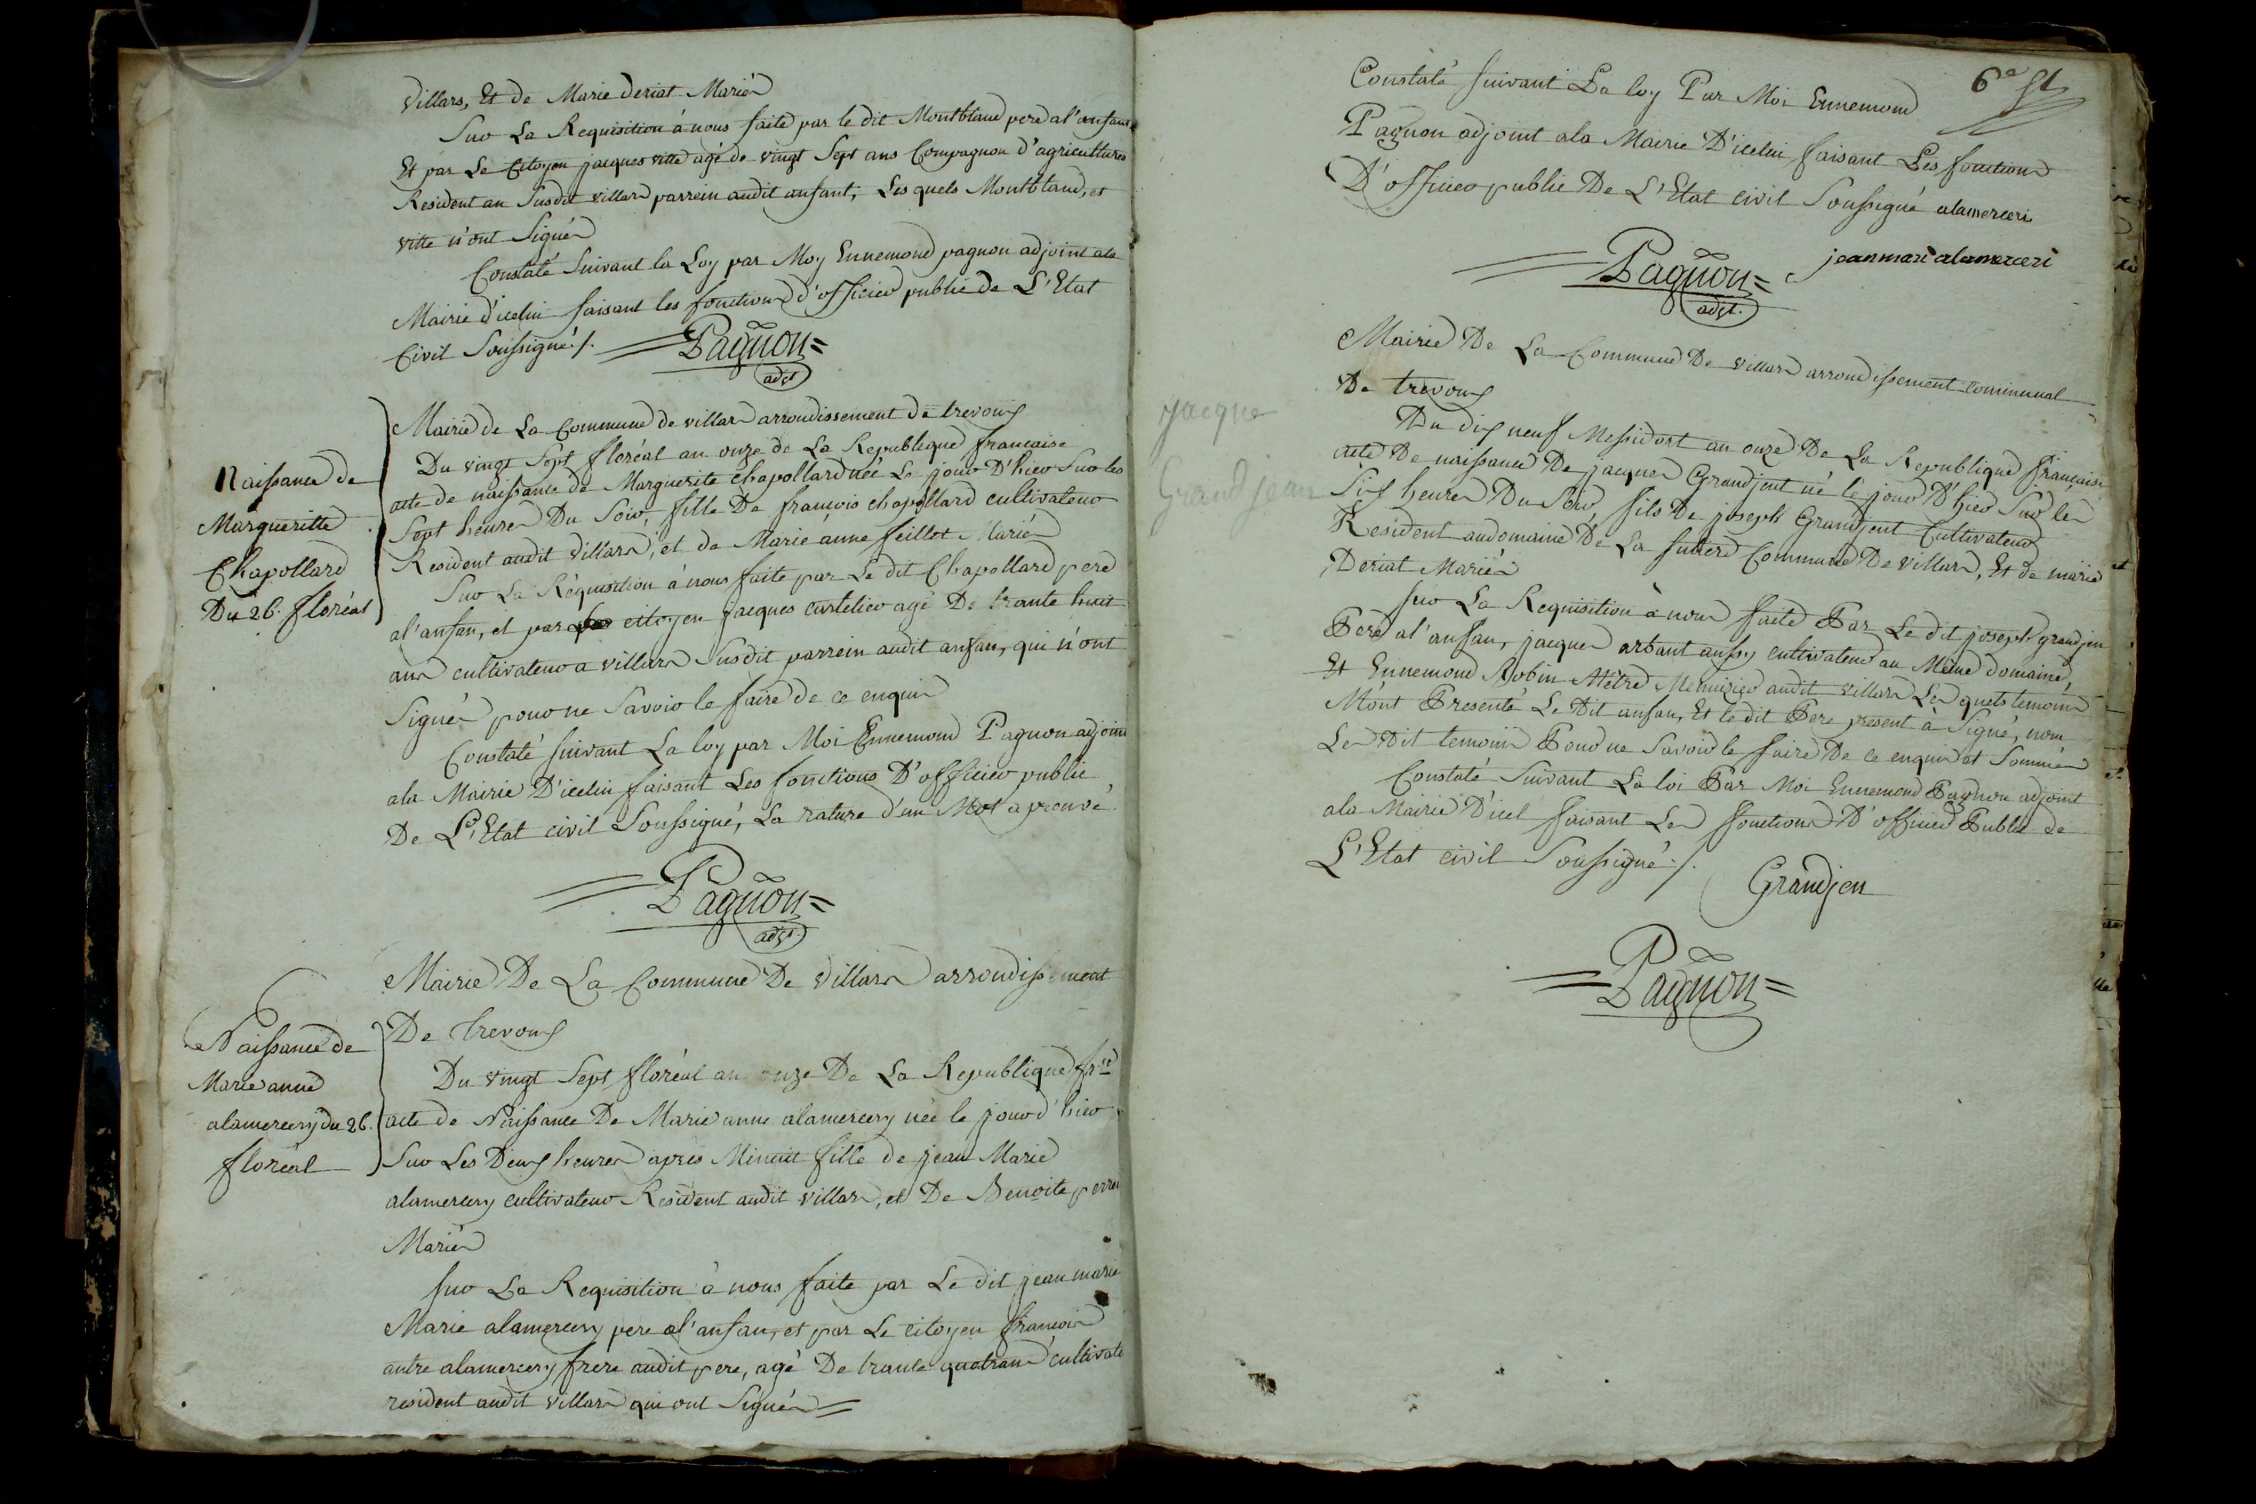 villars, Et de Marie deriat Mariés
Sur La Requisition à nous faite par le dit Montbland pere al'anfant
Et par Le Citoyen jacques vitte agé de vingt Sept ans Compagnon d'agricultures
Resident au Susdit villars parrein audit anfant, Les quels Montbland, et
vitte n'ont Signés
Constaté Suivant la Loy par Moy Ennemond pagnon adjoint ala
Mairie d'icelui faisant les fonctions d'officier public de L'Etat
Civil Soussigné ./.
Pagnon
adjt
Naissance de
Margueritte
Chapollard
Du 26. floréal
Mairie de La Commune de villars arrondissement de trevoux
Du vingt Sept floréal an onze de La Republique francaise
acte de naissance de Marguerite Chapollard née Le jour D'hier Sur les
Sept heures Du Soir, fille De francois chapollard cultivateur
Resident audit villars, et de Marie ánne feillet Mariés
Sur La Réquisition à nous faite par Le dit Chapollard pere
al'anfan, et par citoyen jacques curtelier agé De trante huit
ans cultivateur a villars Susdit parrein audit anfan, qui n'ont
Signés pour ne Savoir le faire de ce enquis
Constaté suivant La loy par Moi Ennemond Pagnon adjoint
ala Mairie D'icelui faisant Les fonctions D'officier public
De L'Etat civil Soussigné, La rature d'un Mot aprouvé.
Pagnon
adjt
Naissance de
Marie anne
alamercery du 26.
floréal
Mairie De La Commune De villars arrondissement
De trevoux
Du vingt Sept floréal an onze De La Republique fse
acte de Naissance De Marie anne alamercery née le jour d'hier
Sur Les Deux heures après Minuit fille de jean Marie
alamercery cultivateur Resident audit villars, et De Benoite
Mariés
Sur La Requisition à nous faite par Le dit jean marie
Marie alamercery pere al'anfan, et par Le citoyen francois
autre alamercery frere audit pere, agé De trante quatrans cultivate
resident audit villars qui ont Signés
6e
Constaté Suivant La loy Par Moi Ennemond
Pagnon adjoint ala Mairie D'icelui faisant Les fonctions
D'officier public De L'Etat civil Soussigné alamerceri
jean mari alamerceri
Pagnon
adjt.
Mairie De La Commune De villars arrondissement communal
De trevoux
jacque
Grand jean
Du dix neuf Messidort an onze De La Republique française
acte De naissance De jacques Grandjent né le jour D'hier Sur les
Six heures Du Soir, fils De joseph Grandjent Cultivateur
Resident au domaine De La Commune De villars, Et de marie
Deriat Mariés
Sur La Requisition à nous faite Par Le dit joseph grandjen
Pere al'anfan, jacques arbant aussy cultivateur au Même domaine,
Et Ennemond Robin Mêtre Menuizier audit villars Les quels temoins
M'ont Presenté Le Dit anfan, Et le dit Pere present à Signé, non
Les dit temoins Pour ne Savoir le faire De ce enquis et Sommés
Constaté Suivant La loi Par Moi Ennemond Pagnon adjoint
ala Mairie D'icel faisant Les fonctions D'officier Public de
L'Etat civil Soussigné ./.
Grandjen
Pagnon